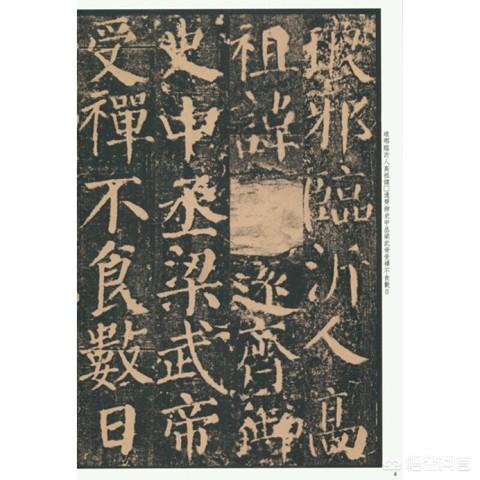 瑯邪臨沂人高
祖諱遠齊御
史中丞梁武帝
受禪不食數日
瑯邪臨沂人高祖諱□遠齊御史中丞梁武帝受禪不食數日
4
悟空问答